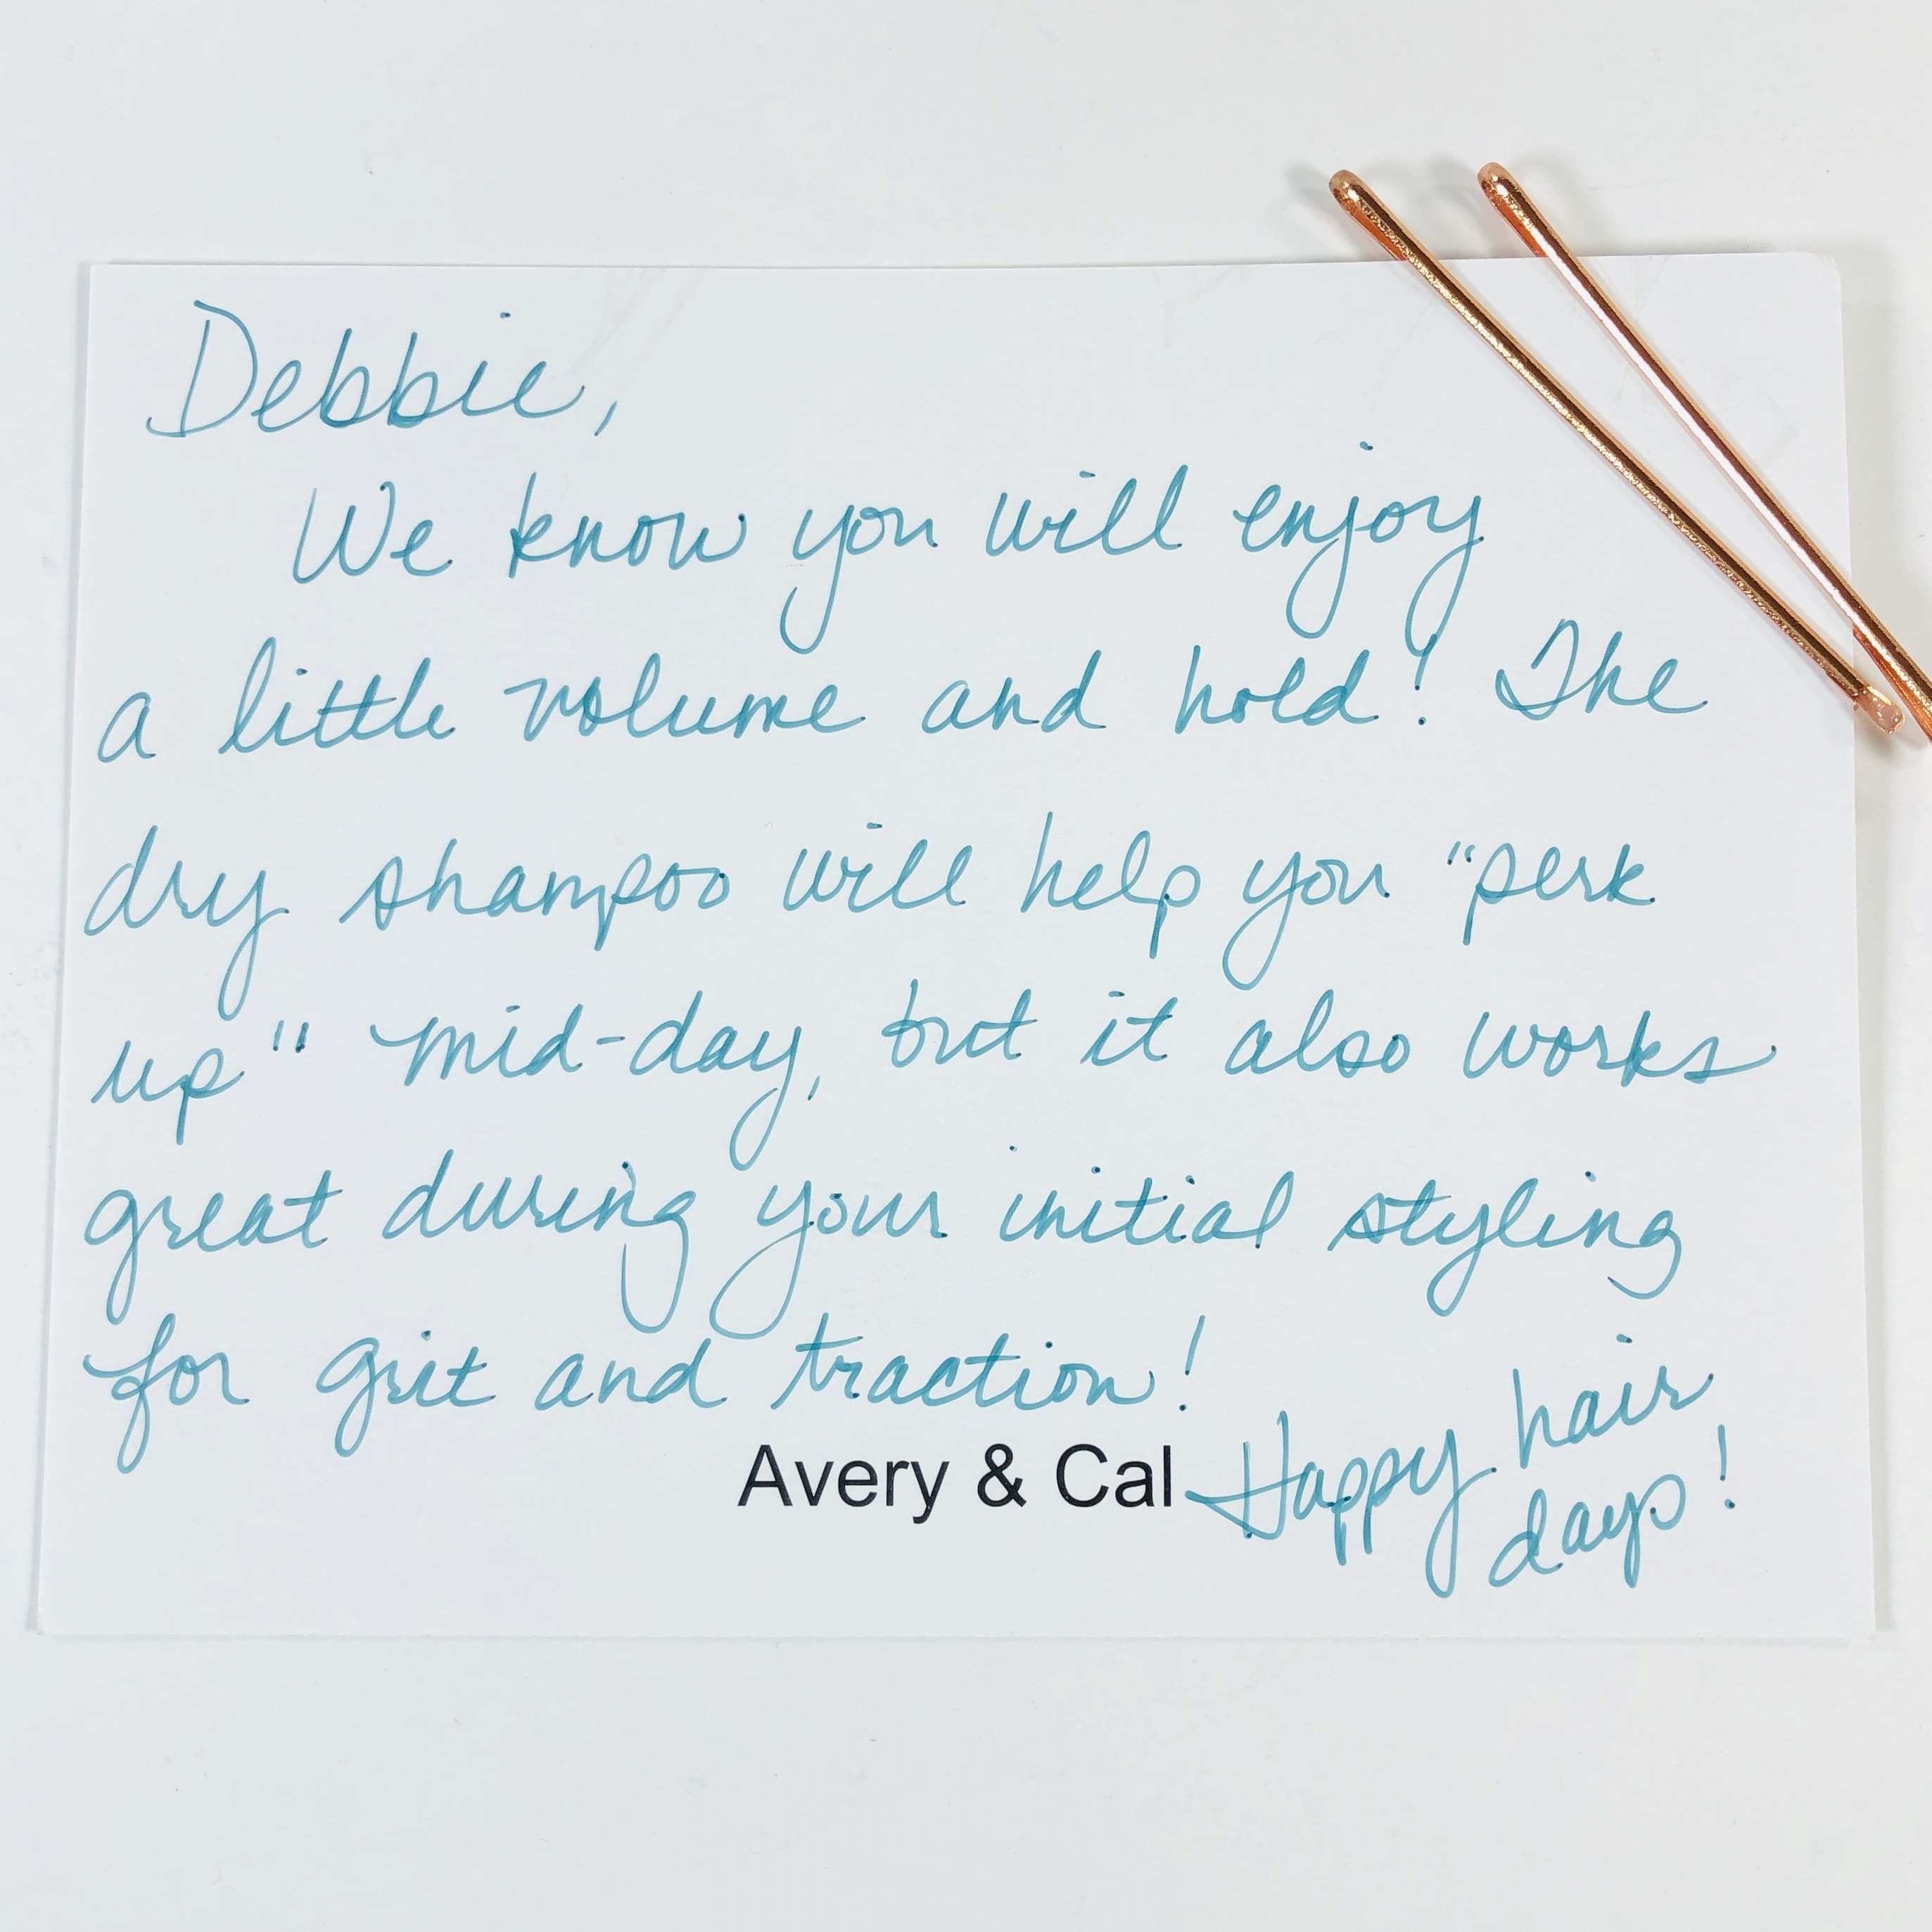 Debbie,
We know you will enjoy
a little volume and hold! The
dry shampoo will help you "perk
up" mid-day, but it also works
great during your initial styling
for grit and traction!
Avery & Cal
Happy hair
days!